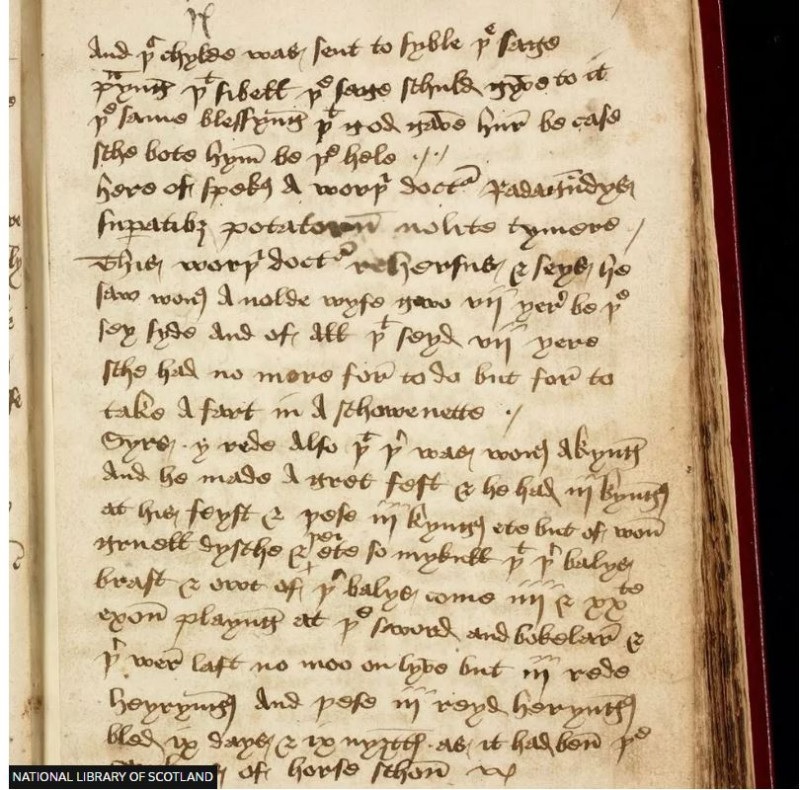 And þᵗ chylde was sent to syble þᵉ sage
þᵗ sibell þᵉ sage schuld gyve to it
þᵉ same blessyng þᵗ god gave hur be case
sche bote hym be þᵉ hele
here of spekꝭ A worþᵉ doctʳ
potatorum nolite tymere
This worþᵉ doctʳ rehersus & seys he
saw wonꝭ A nolde wyfe gwo vii yerꝭ be þᵉ
sey syde And of All þᵗ seyd vii yere
sche had no more for to do but for to
take A fart in A schowenette
Syrs y rede Also þᵗ þʳ was wonꝭ A kyng
And he made A gret fest & he had iii kyngꝭ
at his feyst & þese iii kyngꝭ ete but of won
gruell dysche & þei ete so mykull þᵗ þʳ balys
brast & owt of þʳ balys come iiii & xxᵗᵉ
exon playng at þᵉ sword and bokelar &
þʳ wer laft no moo on lyve but iii rede
heyryngꝭ And þese iii reyd heryngꝭ
bled ix days & ix nyȝttꝭ as it had ben þᵉ
of horse schon
NATIONAL LIBRARY OF SCOTLAND